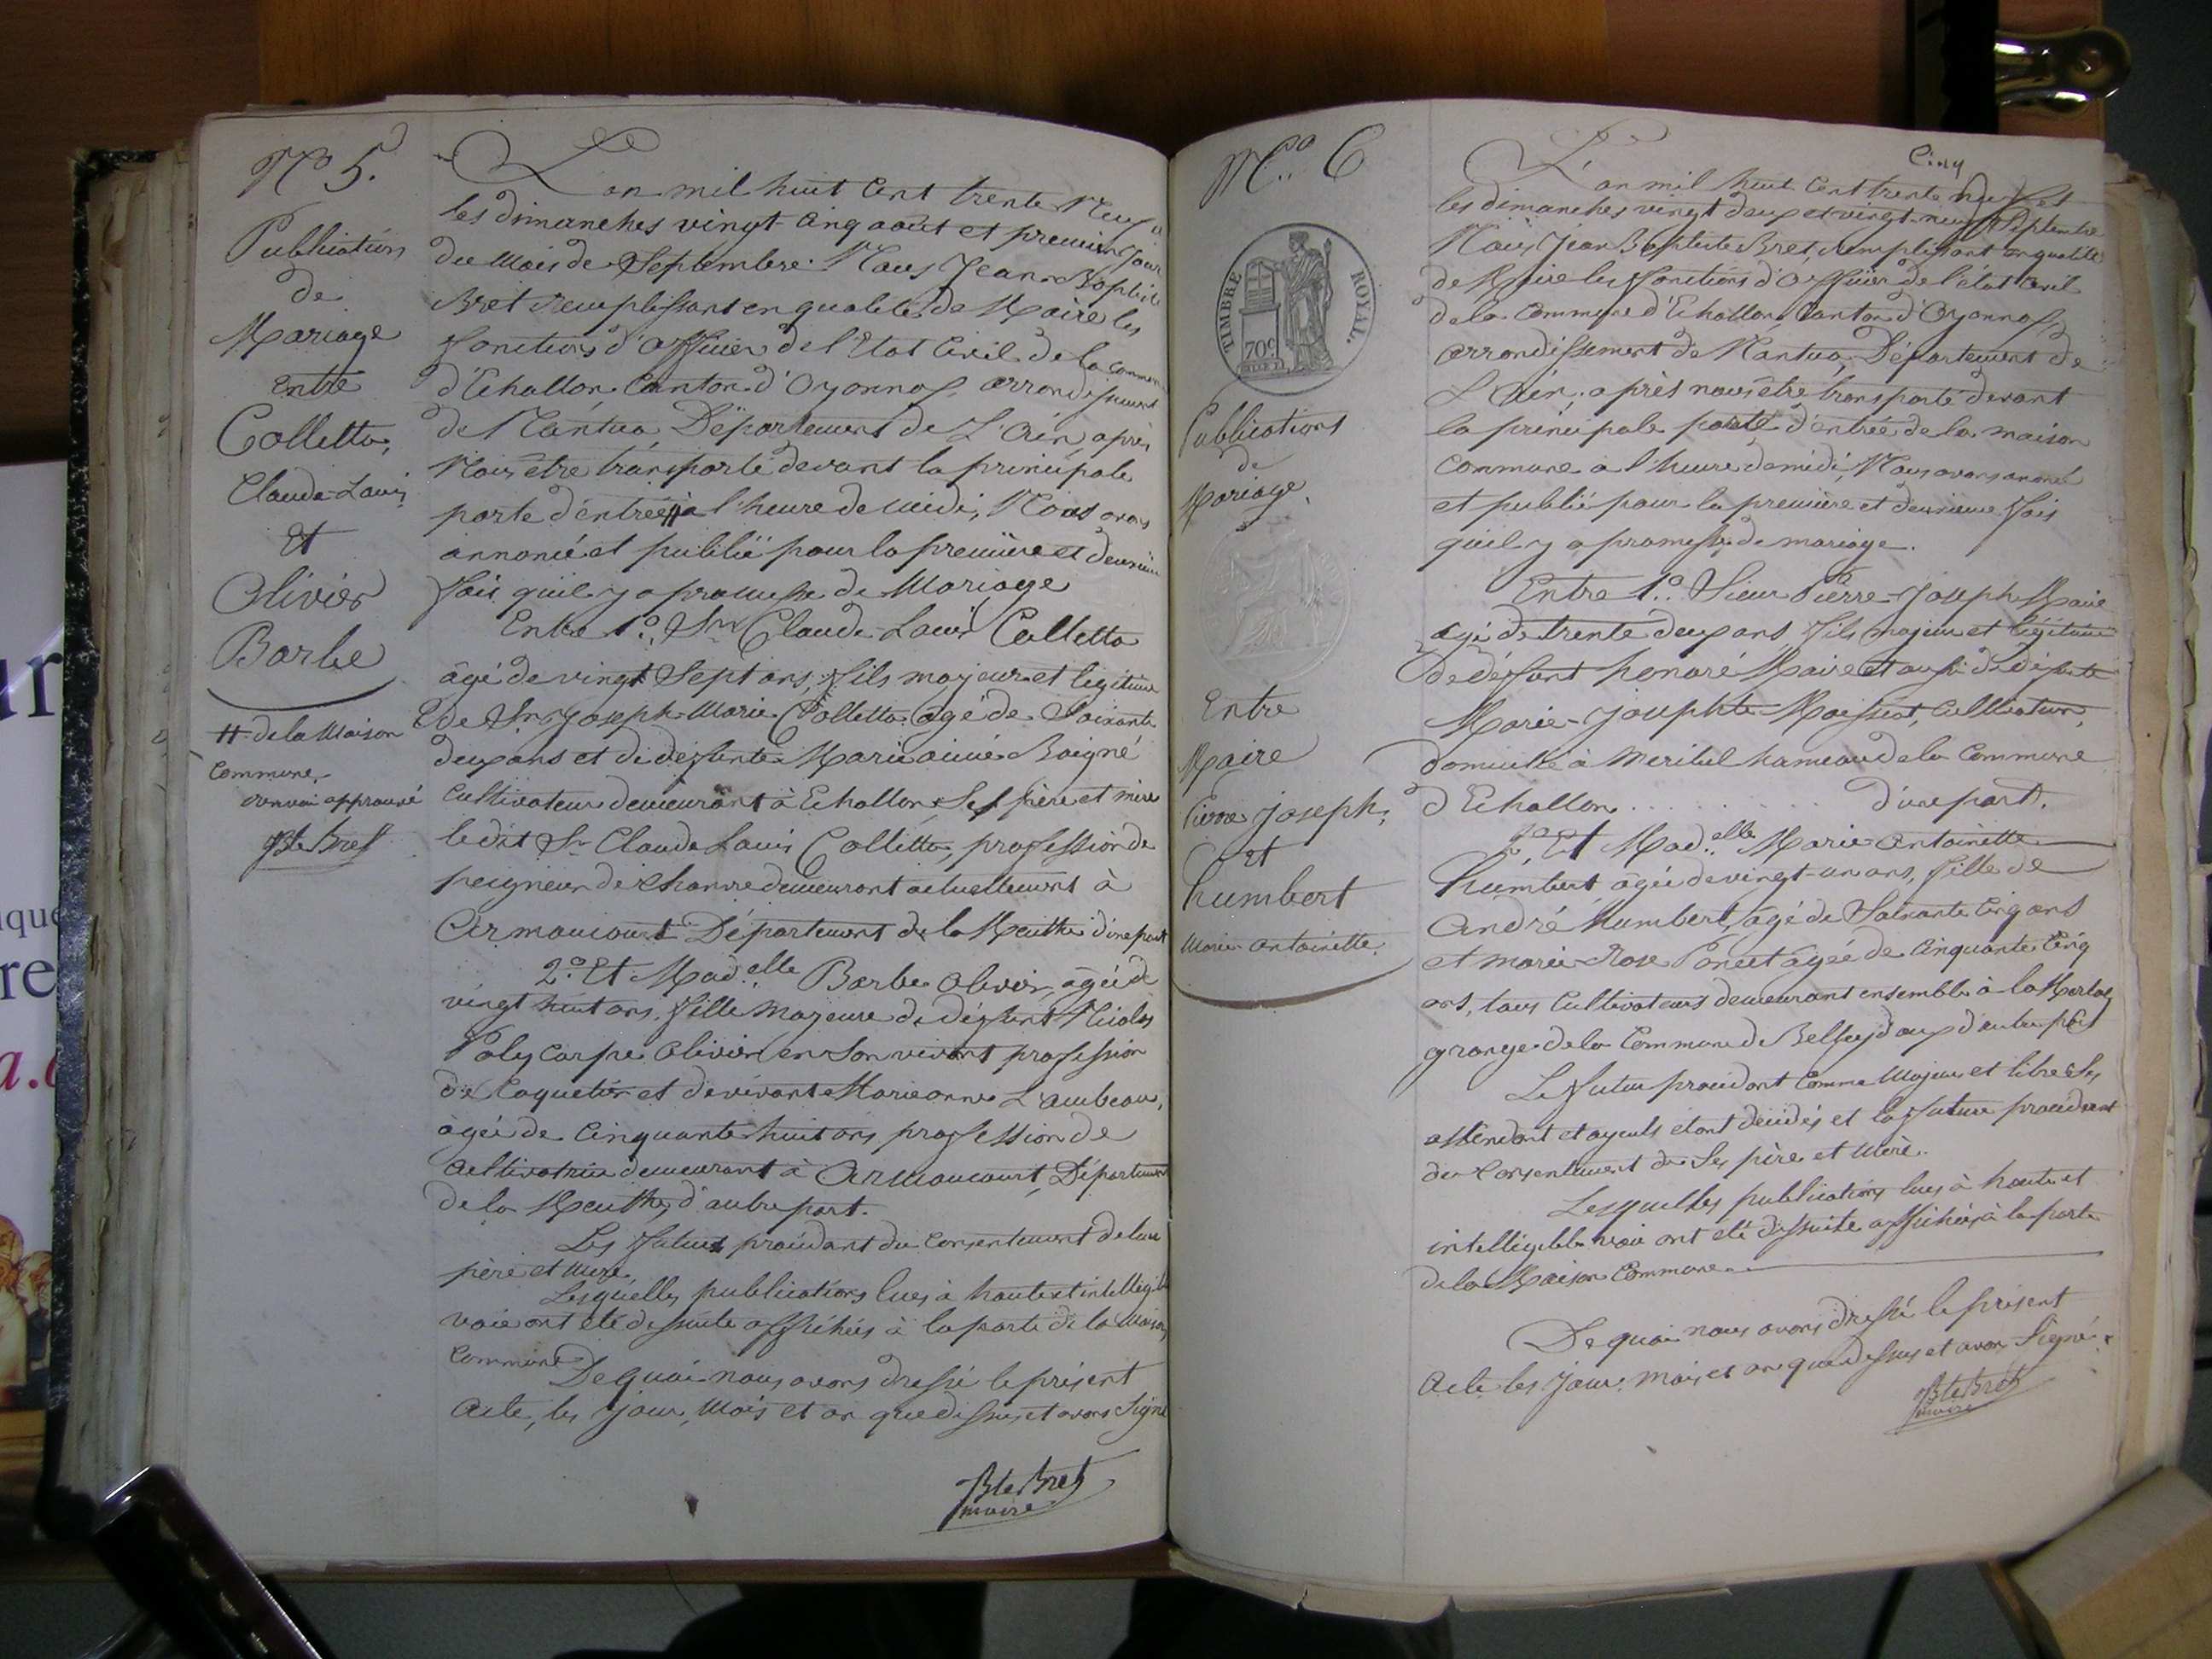 N.o 5.
Publication
de
Mariage
Entre
Colletta,
Claude-Louis
Et
Olivier
Barbe
# de la Maison
Commune,
renvoi approuvé
Bte Bret
L'an mil huit Cent trente Neuf
les dimanches vingt-cinq août et premier Jour
du Mois de Septembre. Nous Jean Baptiste
Bret remplissant en qualité de Maire les
fonctions d'Officier de l'Etat Civil de la Commune
d'Echallon Canton d'Oyonnax, arrondissement
de Nantua, Département de L'Ain, après
Nous être transporté devant la principale
porte d'entrée # à l'heure de Midi, Nous avons
annoncé et publié pour la première et deuxième
fois qu'il y a promesse de Mariage
Entre 1.o Sr Claude-Louis Colletta
âgé de vingt Sept ans, fils majeur et légitime
de Sr Joseph-Marie Colletta âgé de Soixante
deux ans et de défunte Marie aimée Boigné
Cultivateur demeurant à Echallon Ses père et mère
le dit Sr Claude Louis Colletta, profession de
peigneur de chanvre demeurant actuellement à
Armaucourt Département de la Meurthe d'une part
2.o Et Mad.elle Barbe Olivier, âgée de
vingt huit ans, fille Majeure de défunt Nicolas
Polycarpe Olivier en Son vivant profession
de Coquetier et de vivante Marianne L'ambeau,
âgée de Cinquante huit ans profession de
Cultivatrice demeurant à Armaucourt, Département
de la Meurthe, d'autre part.
Les futurs procédant du Consentement de leur
père et Mère.
Lesquelles publications lues à haute et intelligible
voie ont été de suite affichées à la porte de la Maison
Commune
De quoi nous avons dressé le présent
Acte, les jour, Mois et an que dessus, et avons Signé
Bte Bret
maire
N.o 6
TIMBRE ROYAL.
70c
Publications
de
Mariage,
Entre
Maire
Pierre Joseph,
Et
humbert
Marie-antoinette.
Cinq
L'an mil huit Cent trente neuf et
les dimanches vingt deux et vingt-neuf Septembre
Nous Jean Baptiste Bret, remplissant en qualité
de Maire les fonctions d'Officier de l'état Civil
de la Commune d'Echallon, Canton d'Oyonnax,
arrondissement de Nantua, Département de
L'Ain; après nous être transporté devant
la principale porte d'entrée de la maison
Commune à l'heure de midi, Nous avons annoncé
et publié pour la première et deuxième fois
qu'il y a promesse de mariage.
Entre 1.o Sieur Pierre-Joseph Maire
âgé de trente deux ans, fils majeur et légitime
de défunt honoré Maire et aussi de défunte
Marie-Josephte Maissiat, Cultivateur,
domicilié à hameau de la Commune
d'Echallon . . . . . . d'une part.
2.o Et Mad.elle Marie-antoinette
humbert, âgée de vingt-un ans, fille de
André humbert, âgé de Soixante Cinq ans
et marie-Rose Poncet âgée de Cinquante Cinq
ans, tous Cultivateurs demeurant ensemble à la
grange de la Commune de Belleydoux d'autre part
Le futur procédant Comme Majeur et libre Ses
assendant et ayeuls étant décédés et la future procédant
du Consentement de Ses père et Mère.
Lesquelles publications lues à haute et
intelligible voie ont été de suite affichées à la porte
de la Maison Commune.
De quoi nous avons dressé le présent
Acte les Jour, Mois et an que dessus et avons Signé.
Bte Bret
maire